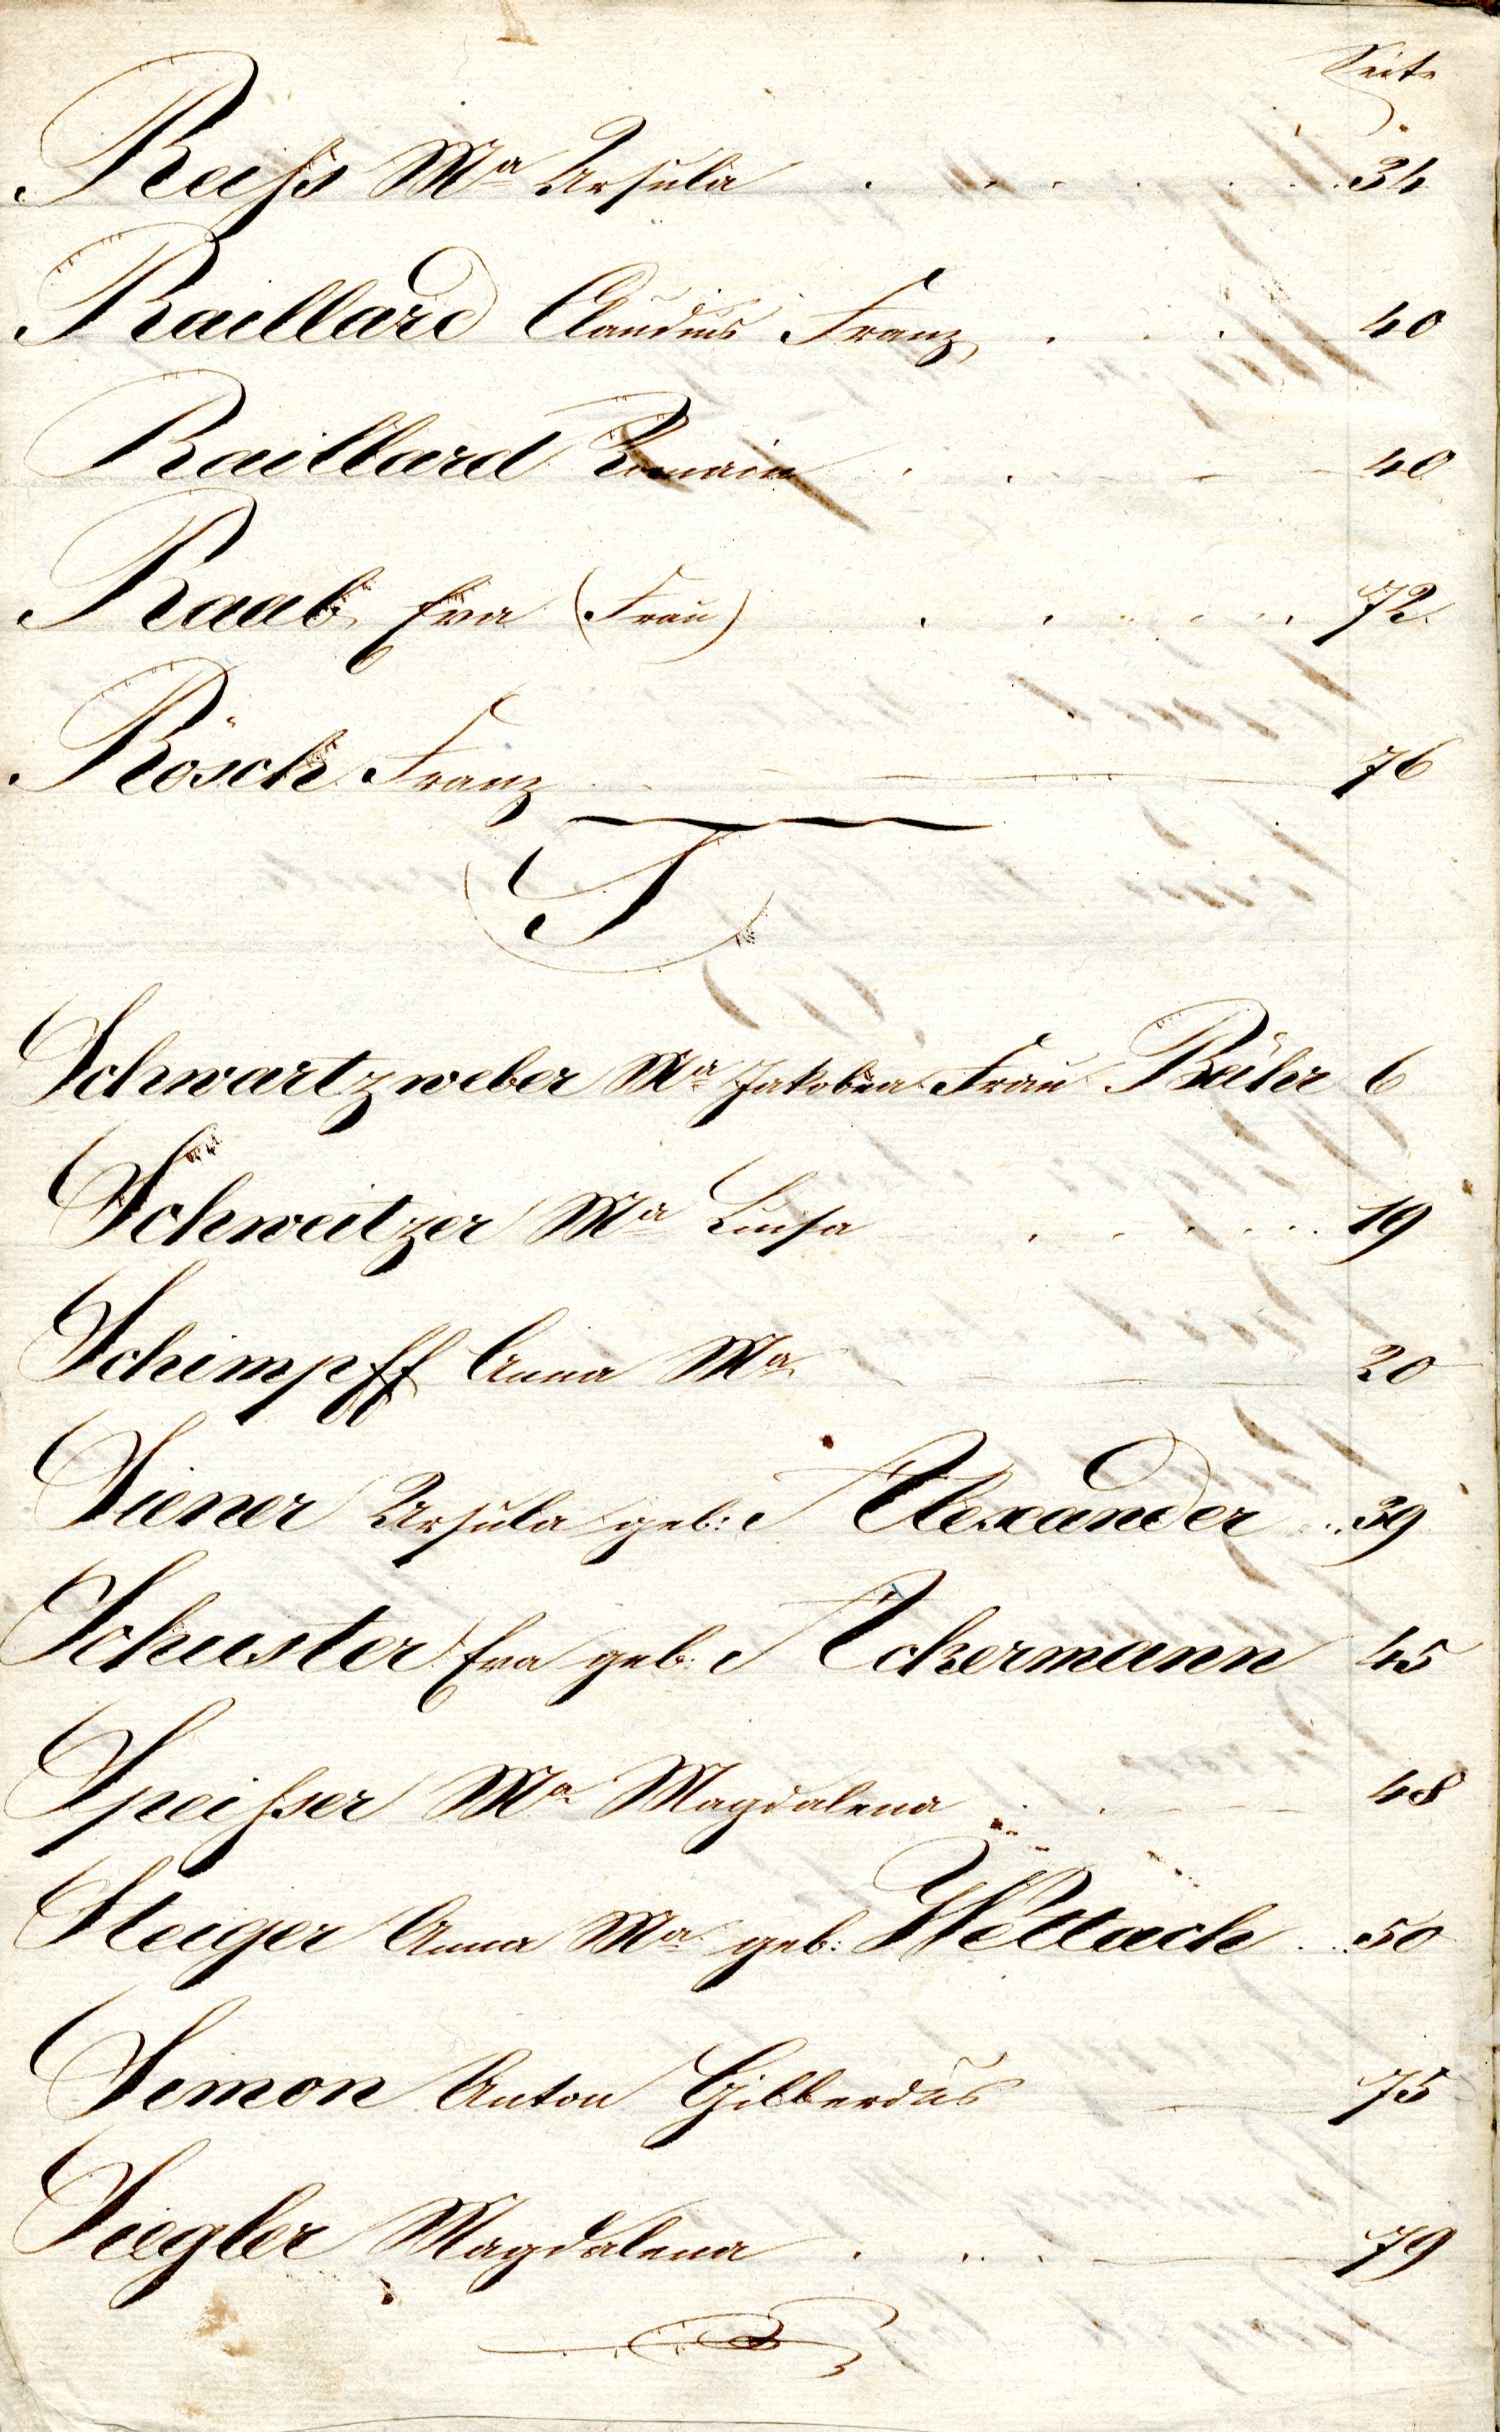 Seite
Reiß Mª Ursula . . . . . . . 34
Raillard Claudius Franz . . . 40
Raillard Romain . . . 40
Raab Eva (Frau) . . . . . 72
Rösch Franz . . 76
S
Schwartzweber Mª Jakobea Frau Bähr 6
Schweitzer Mª Luisa . . . . . . 19
Schimpff Anna Mª 20
Siener Ursula geb: Alexander .. 39
Schuster Eva geb: Ackermann 45
Speißer Mª Magdalena . . 48
Steiger Anna Mª geb: Wettach ... 50
Simon Anton Gilberdus 75
Siegler Magdalena . . . . 79